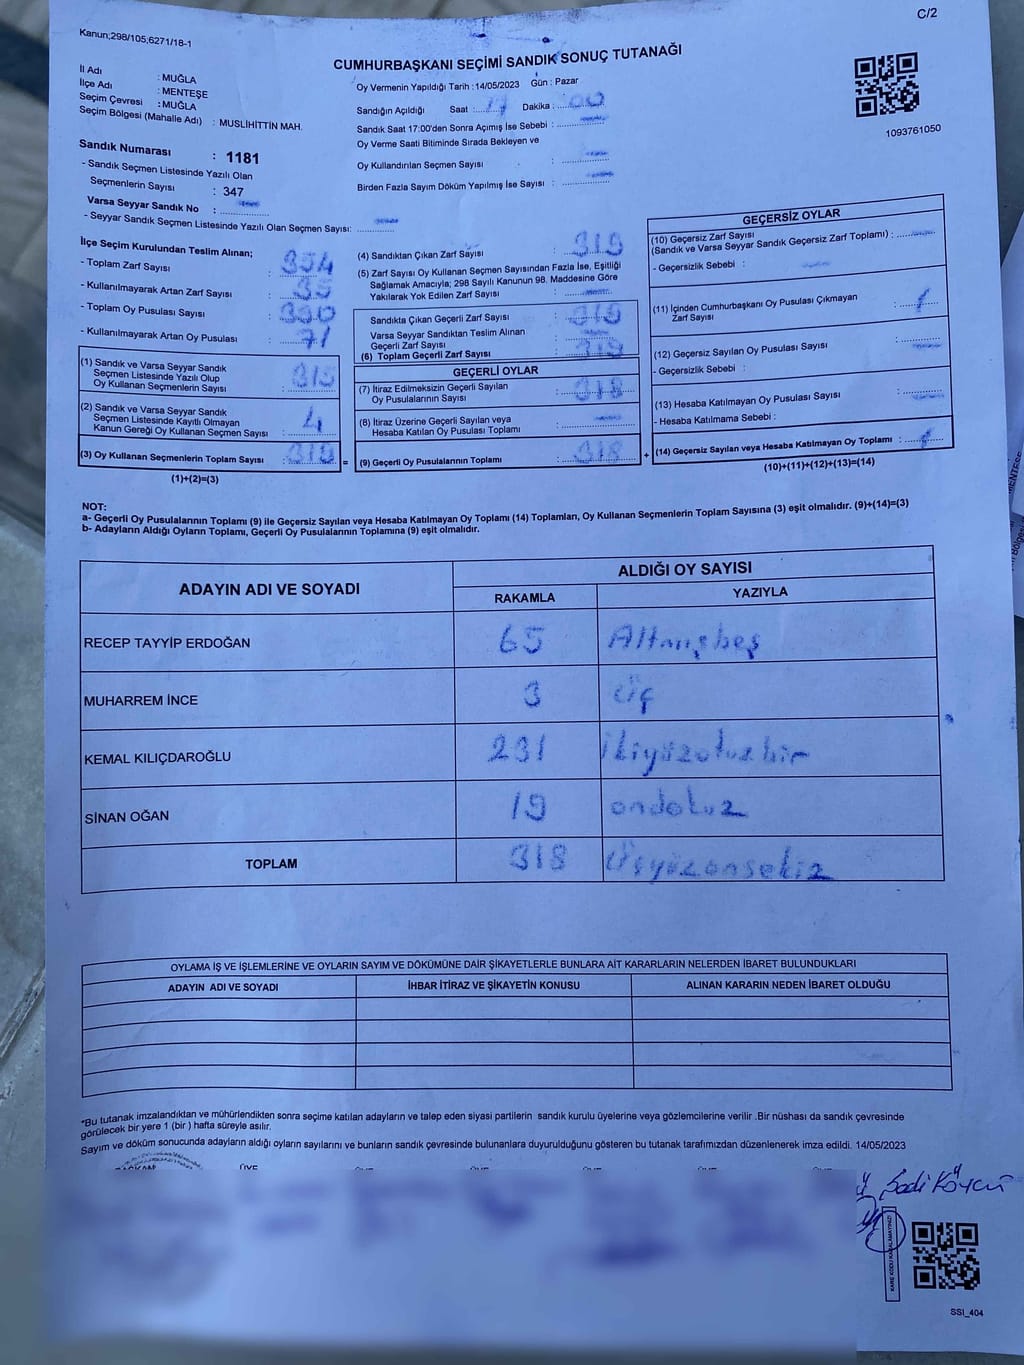 C/2
Kanun;298/105;6271/18-1
CUMHURBAŞKANI SEÇİMİ SANDIK SONUÇ TUTANAĞI
İl Adı : MUĞLA
İlçe Adı : MENTEŞE
Seçim Çevresi : MUĞLA
Seçim Bölgesi (Mahalle Adı) : MUSLİHİTTİN MAH.
Oy Vermenin Yapıldığı Tarih : 14/05/2023 Gün : Pazar
Sandığın Açıldığı Saat : 17 Dakika : 00
Sandık Saat 17:00'den Sonra Açımış İse Sebebi :
Oy Verme Saati Bitiminde Sırada Bekleyen ve
Oy Kullandırılan Seçmen Sayısı :
Birden Fazla Sayım Döküm Yapılmış İse Sayısı :
1093761050
Sandık Numarası : 1181
- Sandık Seçmen Listesinde Yazılı Olan
Seçmenlerin Sayısı : 347
Varsa Seyyar Sandık No :
- Seyyar Sandık Seçmen Listesinde Yazılı Olan Seçmen Sayısı:
İlçe Seçim Kurulundan Teslim Alınan;
- Toplam Zarf Sayısı : 354
- Kullanılmayarak Artan Zarf Sayısı : 35
- Toplam Oy Pusulası Sayısı : 390
- Kullanılmayarak Artan Oy Pusulası : 71
(1) Sandık ve Varsa Seyyar Sandık
Seçmen Listesinde Yazılı Olup
Oy Kullanan Seçmenlerin Sayısı : 315
(2) Sandık ve Varsa Seyyar Sandık
Seçmen Listesinde Kayıtlı Olmayan
Kanun Gereği Oy Kullanan Seçmen Sayısı : 4
(3) Oy Kullanan Seçmenlerin Toplam Sayısı : 319
(1)+(2)=(3)
(4) Sandıktan Çıkan Zarf Sayısı : 319
(5) Zarf Sayısı Oy Kullanan Seçmen Sayısından Fazla İse, Eşitliği
Sağlamak Amacıyla; 298 Sayılı Kanunun 98. Maddesine Göre
Yakılarak Yok Edilen Zarf Sayısı :
Sandıkta Çıkan Geçerli Zarf Sayısı : 319
Varsa Seyyar Sandıktan Teslim Alınan
Geçerli Zarf Sayısı :
(6) Toplam Geçerli Zarf Sayısı : 319
GEÇERLİ OYLAR
(7) İtiraz Edilmeksizin Geçerli Sayılan
Oy Pusulalarının Sayısı : 318
(8) İtiraz Üzerine Geçerli Sayılan veya
Hesaba Katılan Oy Pusulası Toplamı :
= (9) Geçerli Oy Pusulalarının Toplamı : 318 +
GEÇERSİZ OYLAR
(10) Geçersiz Zarf Sayısı
(Sandık ve Varsa Seyyar Sandık Geçersiz Zarf Toplamı) :
- Geçersizlik Sebebi :
(11) İçinden Cumhurbaşkanı Oy Pusulası Çıkmayan
Zarf Sayısı : 1
(12) Geçersiz Sayılan Oy Pusulası Sayısı :
- Geçersizlik Sebebi :
(13) Hesaba Katılmayan Oy Pusulası Sayısı :
- Hesaba Katılmama Sebebi :
(14) Geçersiz Sayılan veya Hesaba Katılmayan Oy Toplamı : 1
(10)+(11)+(12)+(13)=(14)
NOT:
a- Geçerli Oy Pusulalarının Toplamı (9) ile Geçersiz Sayılan veya Hesaba Katılmayan Oy Toplamı (14) Toplamları, Oy Kullanan Seçmenlerin Toplam Sayısına (3) eşit olmalıdır. (9)+(14)=(3)
b- Adayların Aldığı Oyların Toplamı, Geçerli Oy Pusulalarının Toplamına (9) eşit olmalıdır.
ADAYIN ADI VE SOYADI ALDIĞI OY SAYISI
RAKAMLA YAZIYLA
RECEP TAYYİP ERDOĞAN 65 Altmışbeş
MUHARREM İNCE 3 üç
KEMAL KILIÇDAROĞLU 231 ikiyüzotuzbir
SİNAN OĞAN 19 ondokuz
TOPLAM 318 Üçyüzonsekiz
OYLAMA İŞ VE İŞLEMLERİNE VE OYLARIN SAYIM VE DÖKÜMÜNE DAİR ŞİKAYETLERLE BUNLARA AİT KARARLARIN NELERDEN İBARET BULUNDUKLARI
ADAYIN ADI VE SOYADI İHBAR İTİRAZ VE ŞİKAYETİN KONUSU ALINAN KARARIN NEDEN İBARET OLDUĞU
*Bu tutanak imzalandıktan ve mühürlendikten sonra seçime katılan adayların ve talep eden siyasi partilerin sandık kurulu üyelerine veya gözlemcilerine verilir .Bir nüshası da sandık çevresinde
görülecek bir yere 1 (bir ) hafta süreyle asılır.
Sayım ve döküm sonucunda adayların aldığı oyların sayılarını ve bunların sandık çevresinde bulunanlara duyurulduğunu gösteren bu tutanak tarafımızdan düzenlenerek imza edildi. 14/05/2023
BAŞKAN ÜYE
KARE KODU KARALAMAYINIZ!
SSI_404